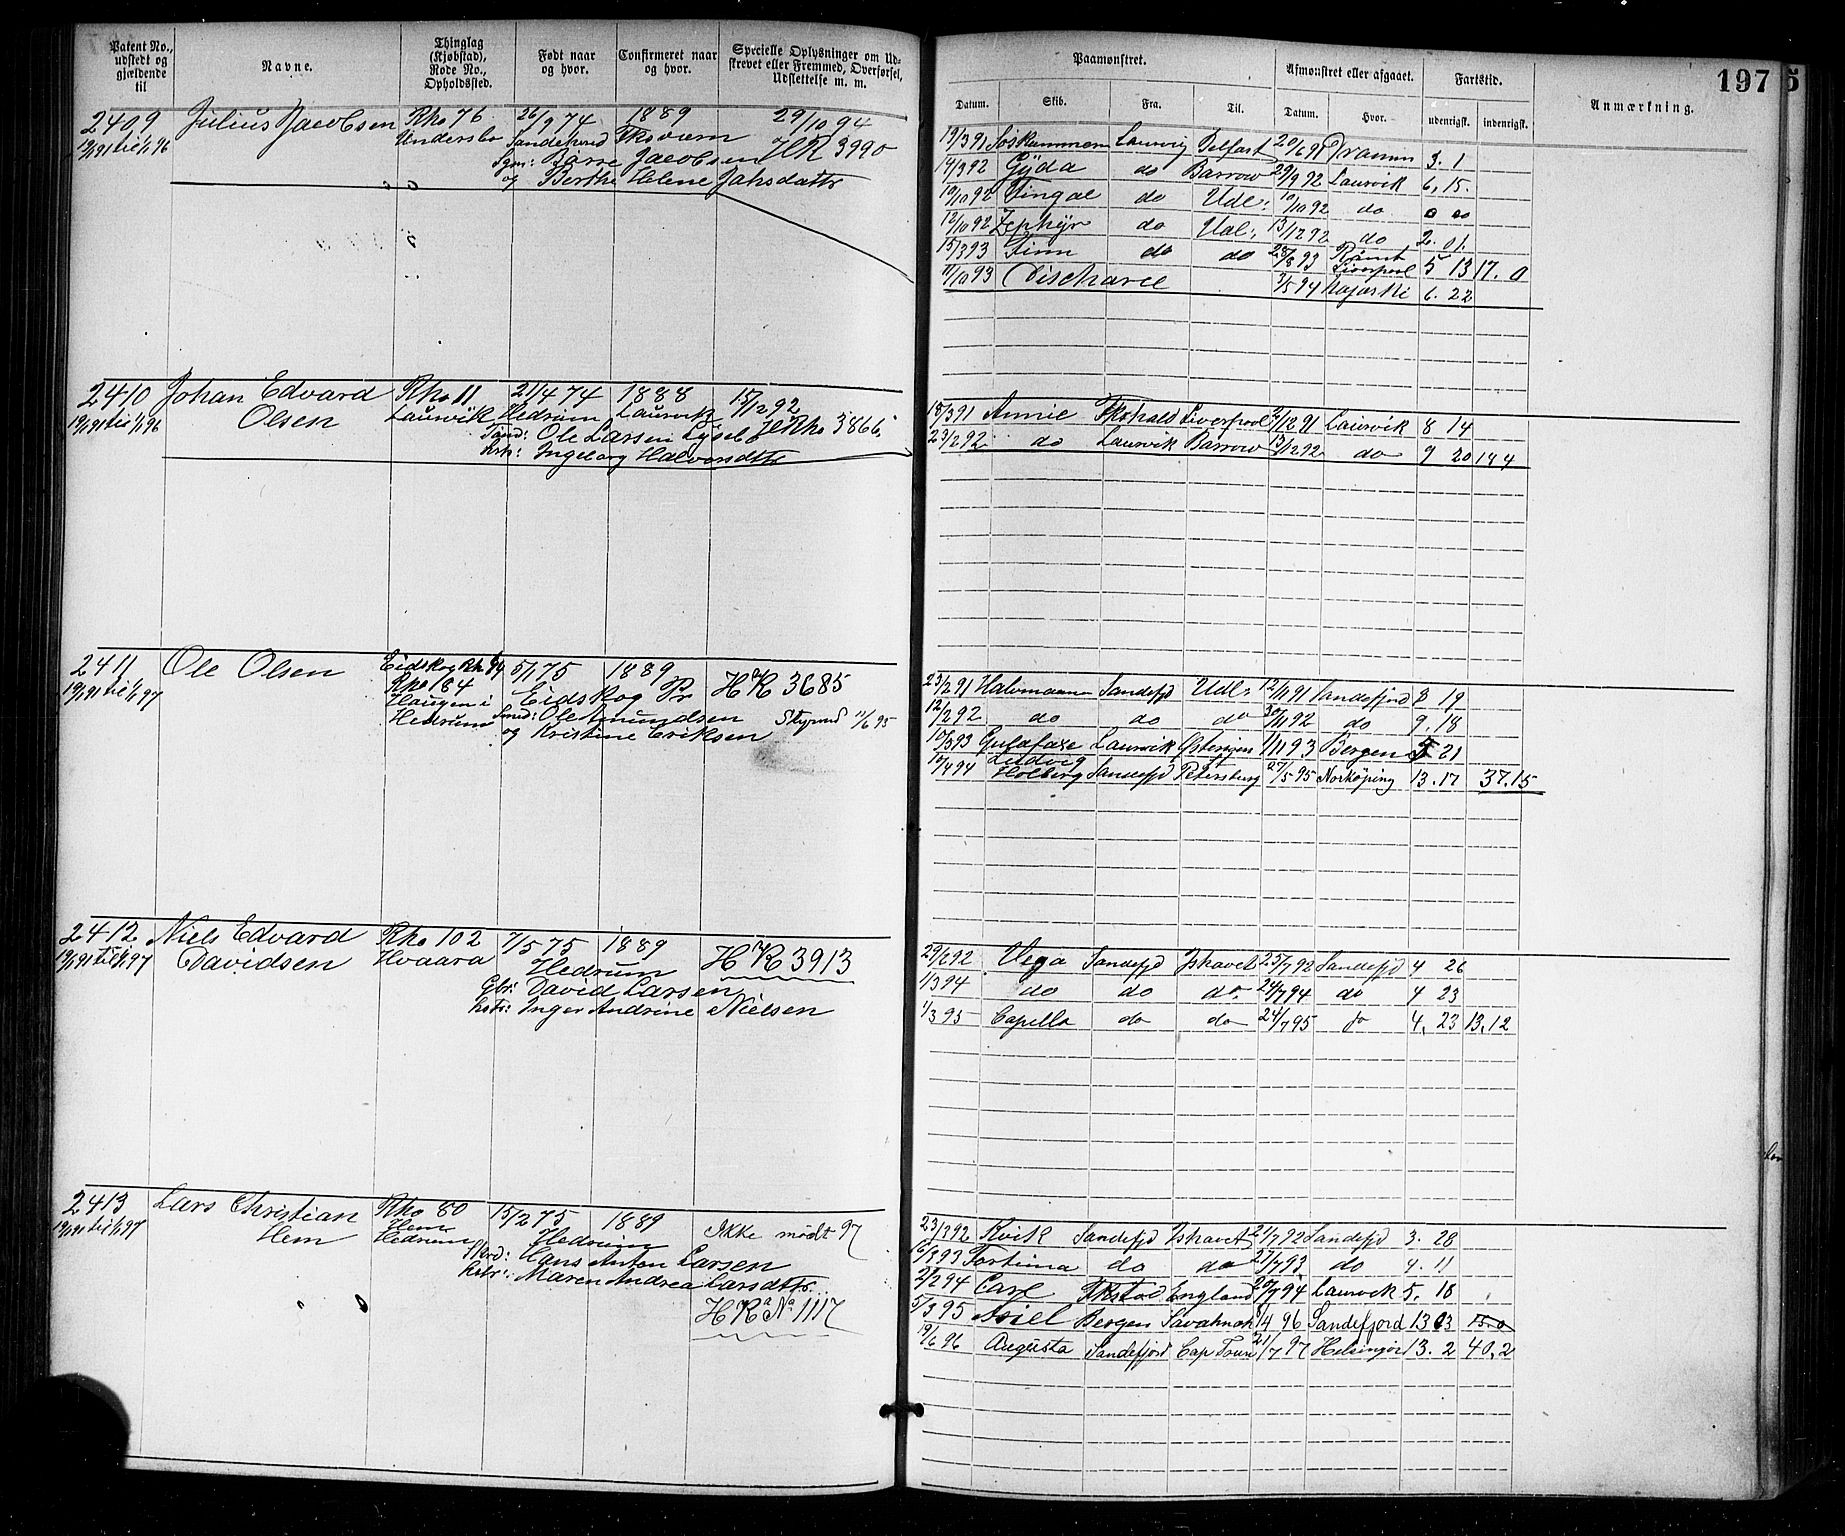 Patent No., udstedt og gjældende til
Navne.
Thinglag (Kjøbstad), Rode No., Opholdssted.
Født naar og hvor.
Confirmeret naar og hvor.
Specielle Oplysninger om Udskrevet eller Fremmed, Overførsel, Udslettelse m. m.
Paamønstret.
Afmønstret eller afgaaet.
Fartstid.
Anmærkning.
197
5
Datum. Skib. Fra. Til. Datum. Hvor. udenrigsk. indenrigsk.
2409 Julius Jacobsen Rho 76 26/9 74 1889 29/10 94
19/1 91 til 1/1 96 Sandeherred HR 3990
Jacobsen
og Berthe Helene
19/3 91 Laurvig Belfast 20/6 91 3. 1
14/3 92 Gyda do Barrow 29/9 92 Laurvik 6, 15.
10/10 92 do Udl: 10/10 92 do
12/10 92 Zephyr do Udl: 13/12 92 do 2. 01.
15/3 93 Finn do do 23/8 93 Liverpool 5 13 17. 0
11/10 93 3/5 94 6. 22
2410 Johan Edvard Rho 11 21/4 74 1888 15/12 92
19/1 91 til 1/1 96 Olsen Laurvik Hedrum Laurvik HRho 3866
Ole Larsen
Ingeborg Halvorsdttr
18/3 91 Annie Liverpool 12 91 Laurvik 8 14
23/2 92 do Laurvik Barrow 13/12 92 do 9 20 18 4
2411 Ole Olsen Eidskog 5/1 75 1889 HR 3685
19/1 91 til 1/1 97 Rho 184 Eidskog Pr
Haugen i Hedrum Smd: Ole Amundsen 11/6 95
og Kristine Eriksen
23/2 91 Sandefjd Udl: 12/11 91 Sandefjord 8 19
12/2 92 do do do 30/11 92 do 9. 18
10/3 93 Gulafaxe Laurvik 1/11 93 Bergen 21
10/4 94 Ludvig Holberg Sandefjd Petersburg 27/5 95 Norkøping 13. 17 37. 15
2412 Niels Edvard Rho 102 7/5 75 1889 HR 3913
19/1 91 til 1/1 97 Davidsen Hvaara Hedrum
Gbr: David Larsen
hstr: Inger Andrine Nielsen
29/2 92 Vega Sandefjd Ishavet 25/7 92 Sandefjd 4 26
1/3 94 do do do. 24/7 94 do 4 23
1/3 95 Capella do do 24/7 95 do 4, 23 13, 12
2413 Lars Christian Rho 80 15/2 75 1889 Ikke mødt 97
19/1 91 til 1/1 97 Hem Hem Hedrum Hedrum
Hans Anton Larsen
hstr: Maren Andrea Larsdttr
HR No 1117
23/3 92 Kvik Sandefjd Ishavet 21/7 92 Sandefjd 3. 28
16/3 93 Fortuna do do 27/7 93 do 4. 11
2/2 94 Carl England 20/9 94 Laurvik 5. 18
5/3 95 Bergen Savahnah 1/4 96 Sandefjord 13 03 15.0
19/6 96 Augusta Sandefjord 21/7 97 Helsingør 13. 2 40, 2